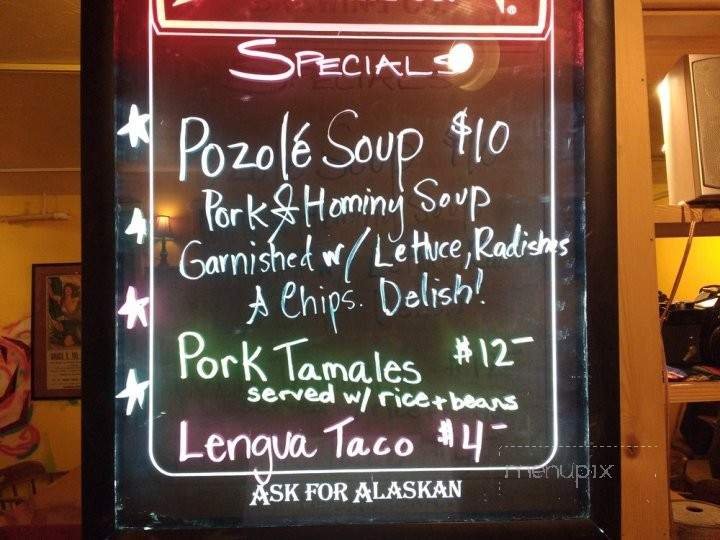 SPECIALS
Pozolé Soup $10
Pork & Hominy Soup
Garnished w/ Lettuce, Radishes
& Chips. Delish!
Pork Tamales $12-
served w/ rice + beans
Lengua Taco $4-
ASK FOR ALASKAN
menupix